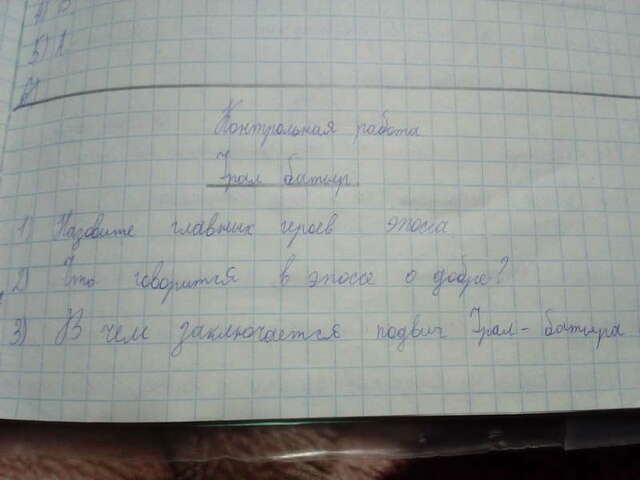 5) 1
Контрольная работа
Урал батыр.
1) Назовите главных героев эпоса
2) Что говорится в эпосе о добре?
3) В чем заключается подвиг Урал-батыра